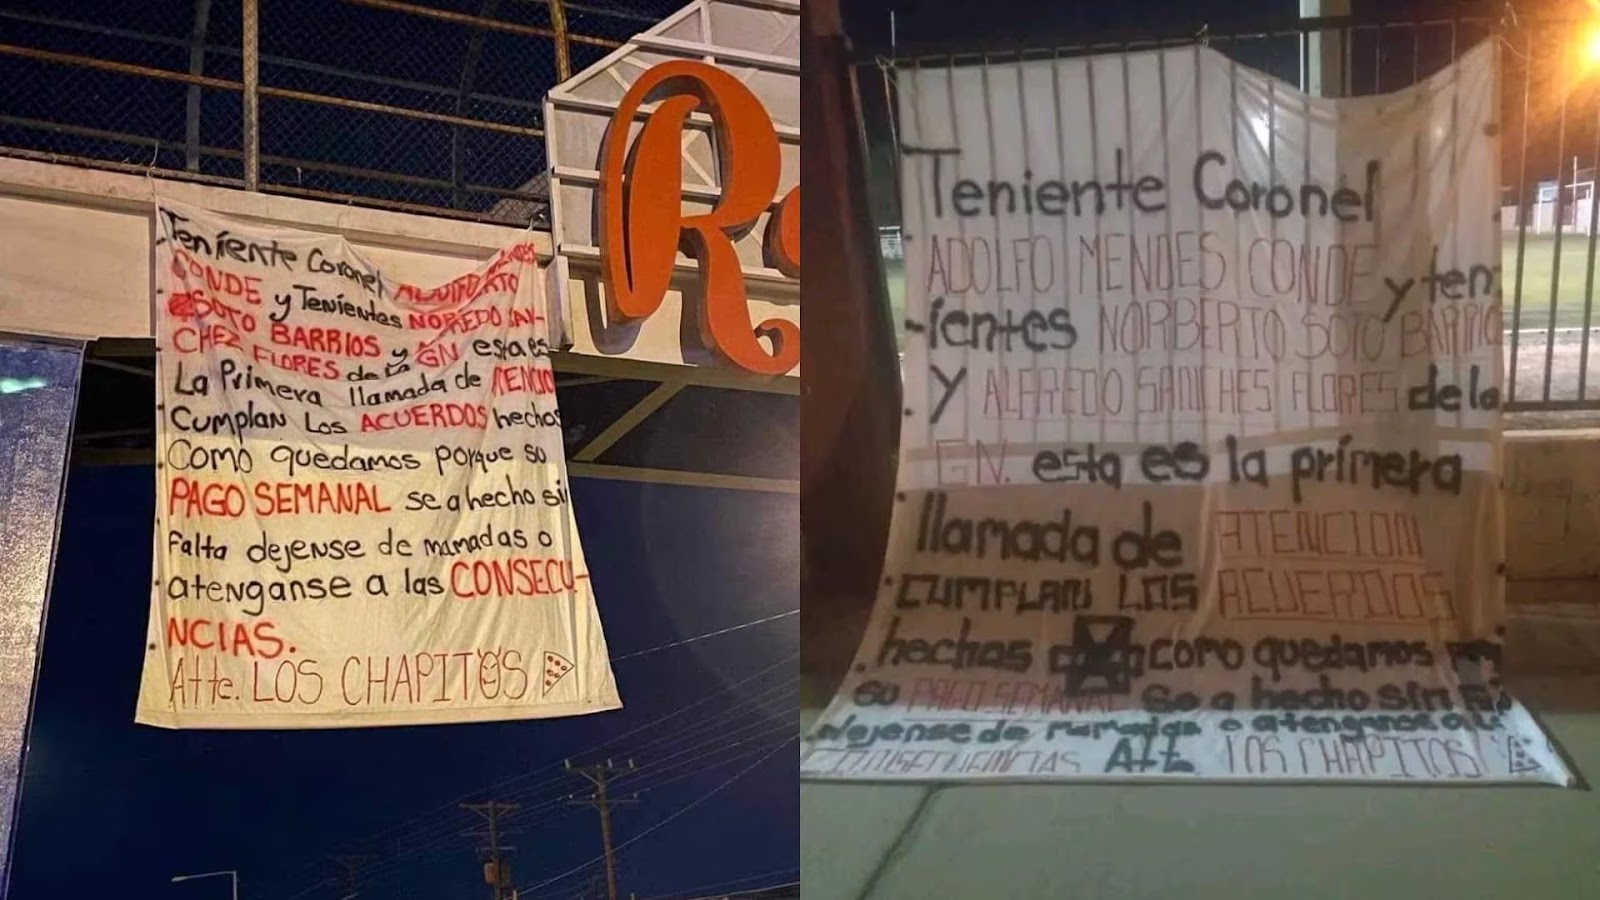 Teniente Coronel
CONDE y Tenientes NOREDO SAN-
SOTO BARRIOS y GN esta es
CHEZ FLORES de la
La Primera llamada de
Cumplan Los ACUERDOS hechos
Como quedamos porque su
PAGO SEMANAL se a hecho sin
falta dejense de mamadas o
atenganse a las CONSECU-
NCIAS.
Atte. LOS CHAPITOS
R
Teniente Coronel
ADOLFO MENDES CONDE y ten-
ientes NORBERTO SOTO BARRIO
y ALFREDO SANCHES FLORES de la
GN. esta es la primera
llamada de ATENCION
CUMPLAN LOS ACUERDOS
hechos como quedamos
su PAGO SEMANAL se a hecho sin
dejense de mamadas o atenganse a
CONSECUENCIAS Att. LOS CHAPITOS